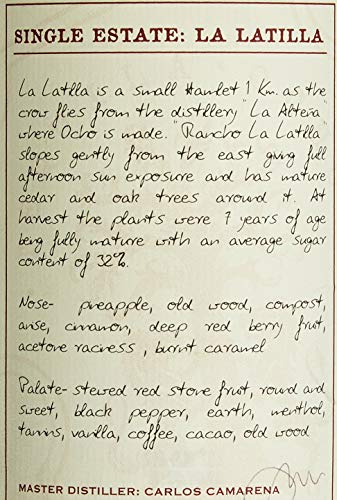 SINGLE ESTATE: LA LATILLA
La Latilla is a small Hamlet 1 Km. as the
crow flies from the distillery "La Alteña"
where Ocho is made. "Rancho La Latilla"
slopes gently from the east giving full
afternoon sun exposure and has mature
cedar and oak trees around it. At
harvest the plants were 7 years of age
being fully mature with an average sugar
content of 32%.
Nose- pineapple, old wood, compost,
anise, cinnamon, deep red berry fruit,
acetone raciness, burnt caramel
Palate- stewed red stone fruit, round and
sweet, black pepper, earth, menthol,
tannins, vanilla, coffee, cacao, old wood
MASTER DISTILLER: CARLOS CAMARENA